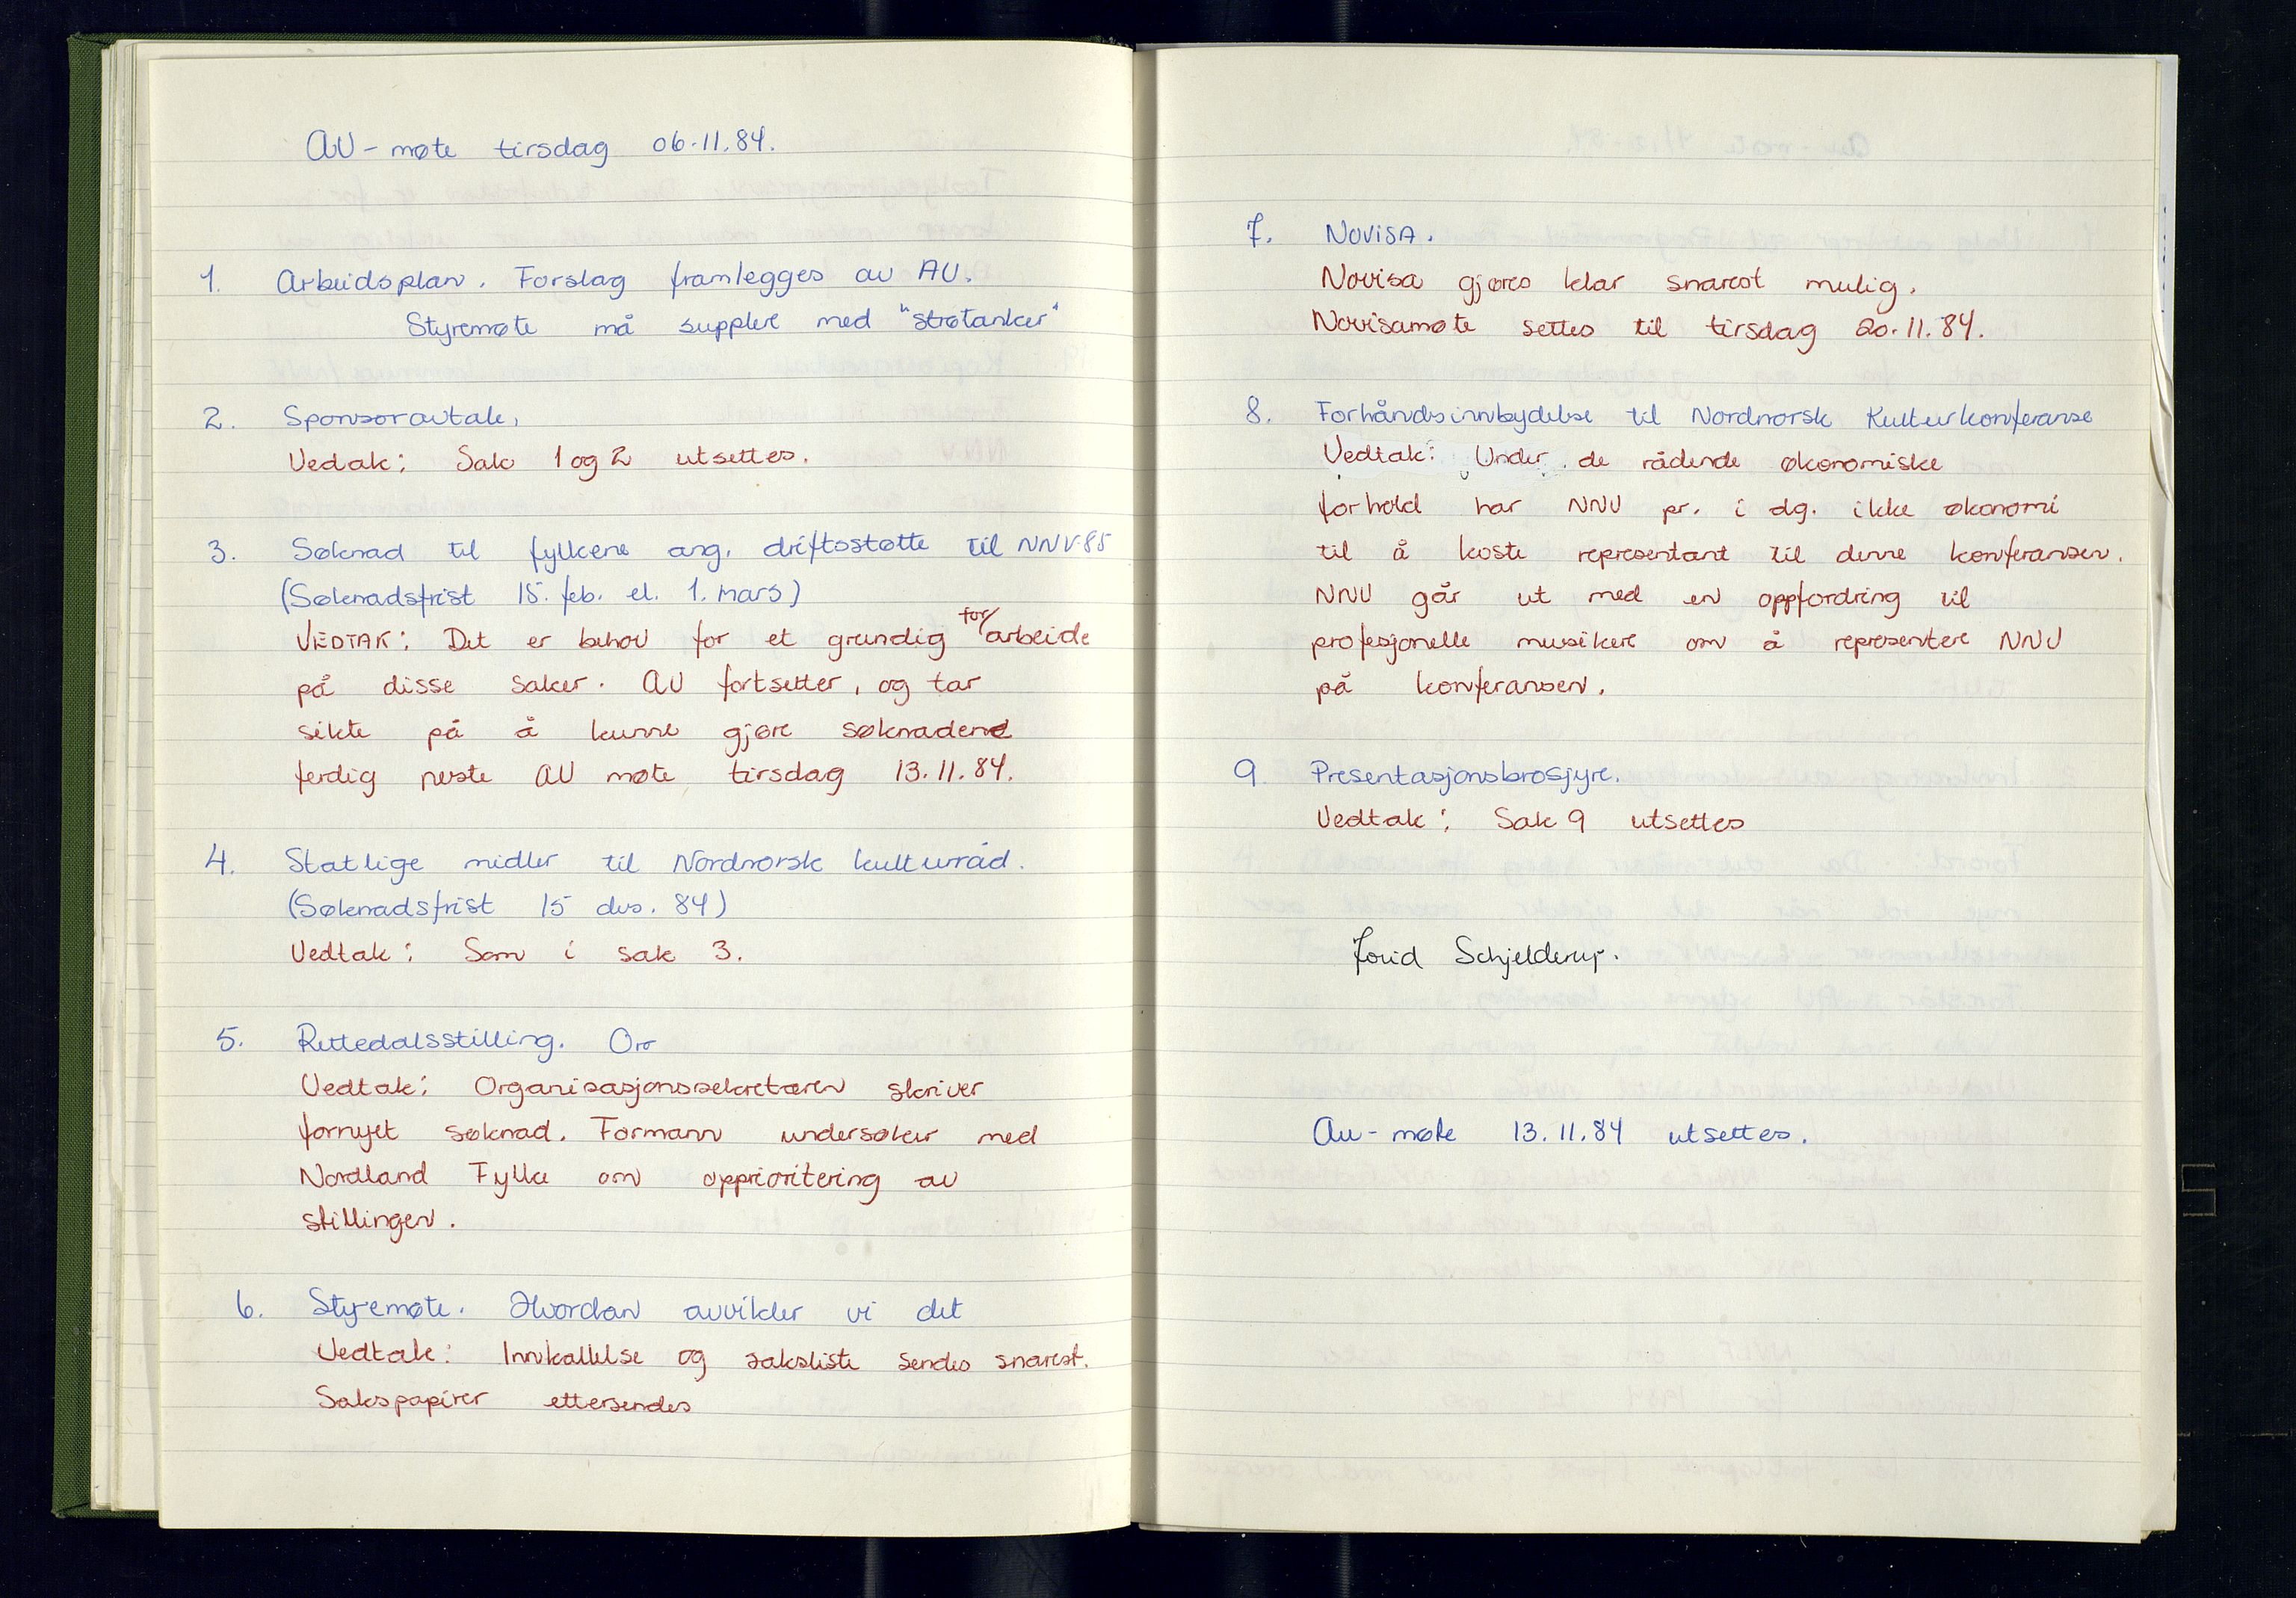 AU-møte tirsdag 06.11.84.
1. Arbeidsplan. Forslag framlegges av AU.
Styremøte må supplere med "strøtanker"
2. Sponsoravtale.
Vedak: Sak 1 og 2 utsettes.
3. Søknad til fylkene ang. driftsstøtte til NNV-85
(Søknadsfrist 15. feb. el. 1. mars)
VEDTAK: Det er behov for et grundig for/arbeide
på disse saker. AU fortsetter, og tar
sikte på å kunne gjøre søknadene
ferdig neste AU møte tirsdag 13.11.84.
4. Statlige midler til Nordnorsk kulturråd.
(Søknadsfrist 15 des. 84)
Vedtak: Som i sak 3.
5. Rettedalsstilling. Or
Vedtak: Organisasjonssekretæren skriver
fornyet søknad. Formann undersøker med
Nordland Fylke om opprioritering av
stillingen.
6. Styremøte. Hvordan avvikler vi det
Vedtak: Innkallelse og saksliste sendes snarest.
Sakspapirer ettersendes
7. NOVISA.
Novisa gjøres klar snarest mulig.
Novisamøte settes til tirsdag 20.11.84.
8. Forhåndsinnbydelse til Nordnorsk Kulturkonferanse
Vedtak: Under de rådende økonomiske
forhold har NNV pr. i dg. ikke økonomi
til å koste representant til denne konferansen.
NNV går ut med en oppfordring til
profesjonelle musikere om å representere NNV
på konferansen.
9. Presentasjonsbrosjyre.
Vedtak: Sak 9 utsettes
Torid Schjelderup.
Au-møte 13.11.84 utsettes.